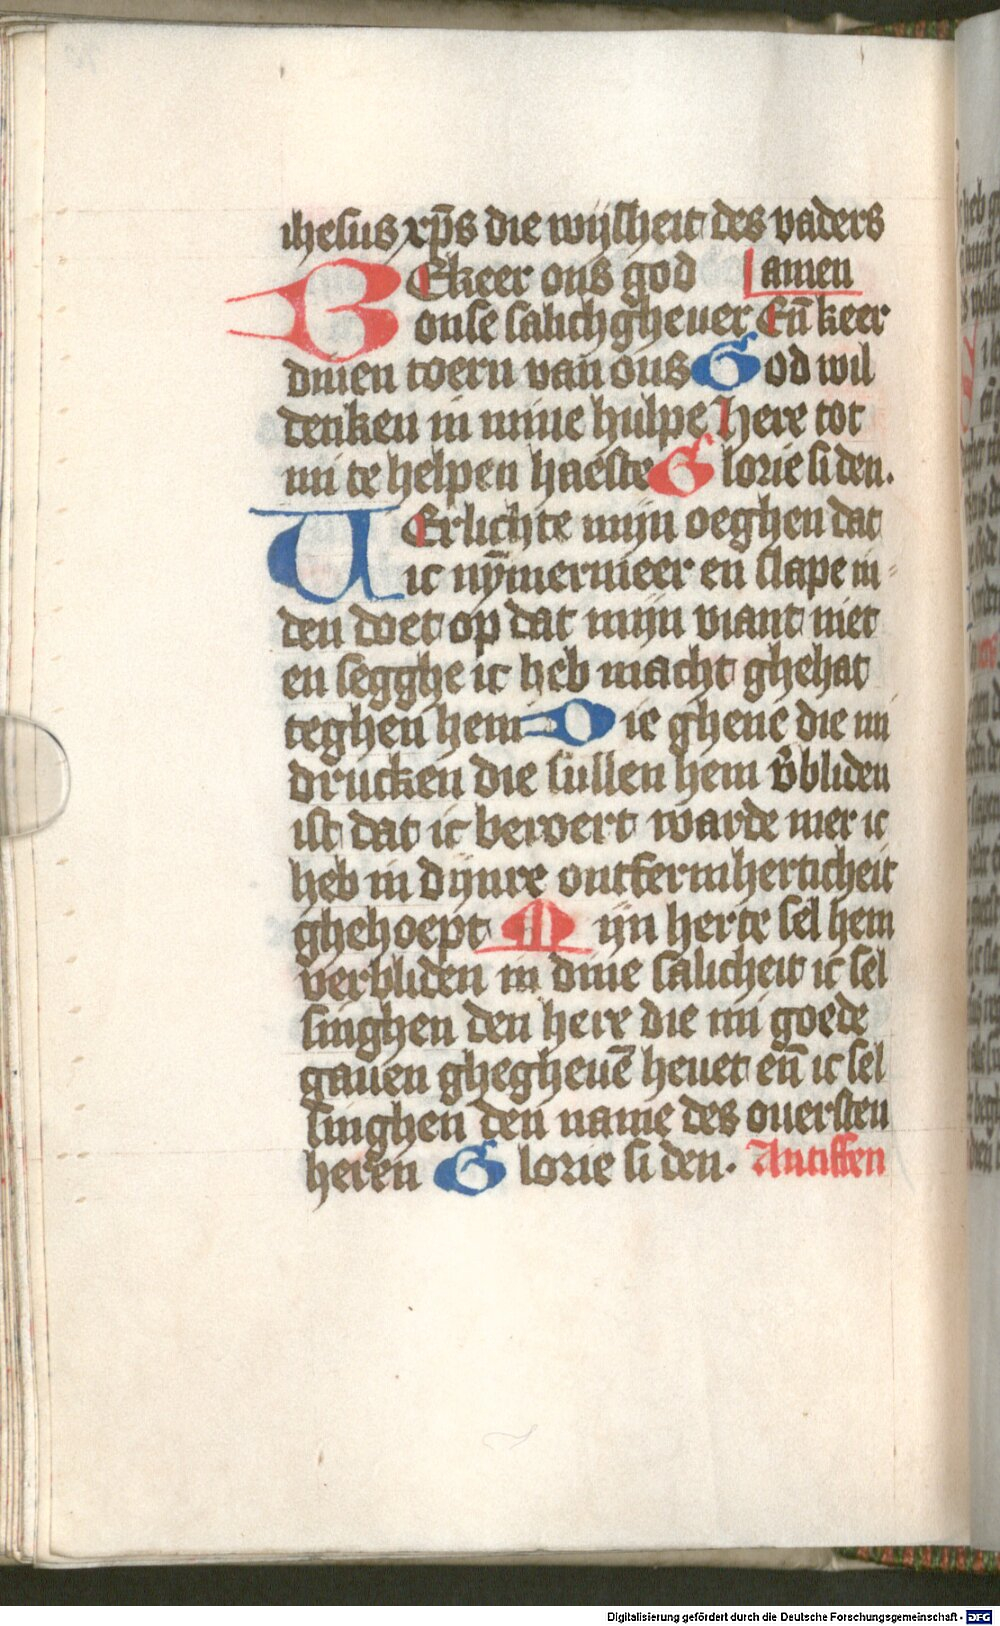 ihesus xp̄s die wijsheit des vaders
BEkeer ons god amen
onse salichgheuer Eñ keer
dinen toern van ons God wil
denken in mine hulpe here tot
mi te helpen haeste Glorie si den.
VErlichte mijn oeghen dat
ic nȳmermeer en slape in-
den doet op dat mijn viant niet
en segghe ic heb macht ghehat
teghen hem Die ghene die mi
drucken die sullen hem v̄bliden
ist dat ic bewert warde mer ic
heb in dijnre ontfermherticheit
ghehoept Mijn herte sel hem
verbliden in dine salicheit ic sel
singhen den here die mi goede
gauen ghegheuē heuet eñ ic sel
singhen den name des ouersten
heren Glorie si den. Antiffen
Digitalisierung gefördert durch die Deutsche Forschungsgemeinschaft - DFG